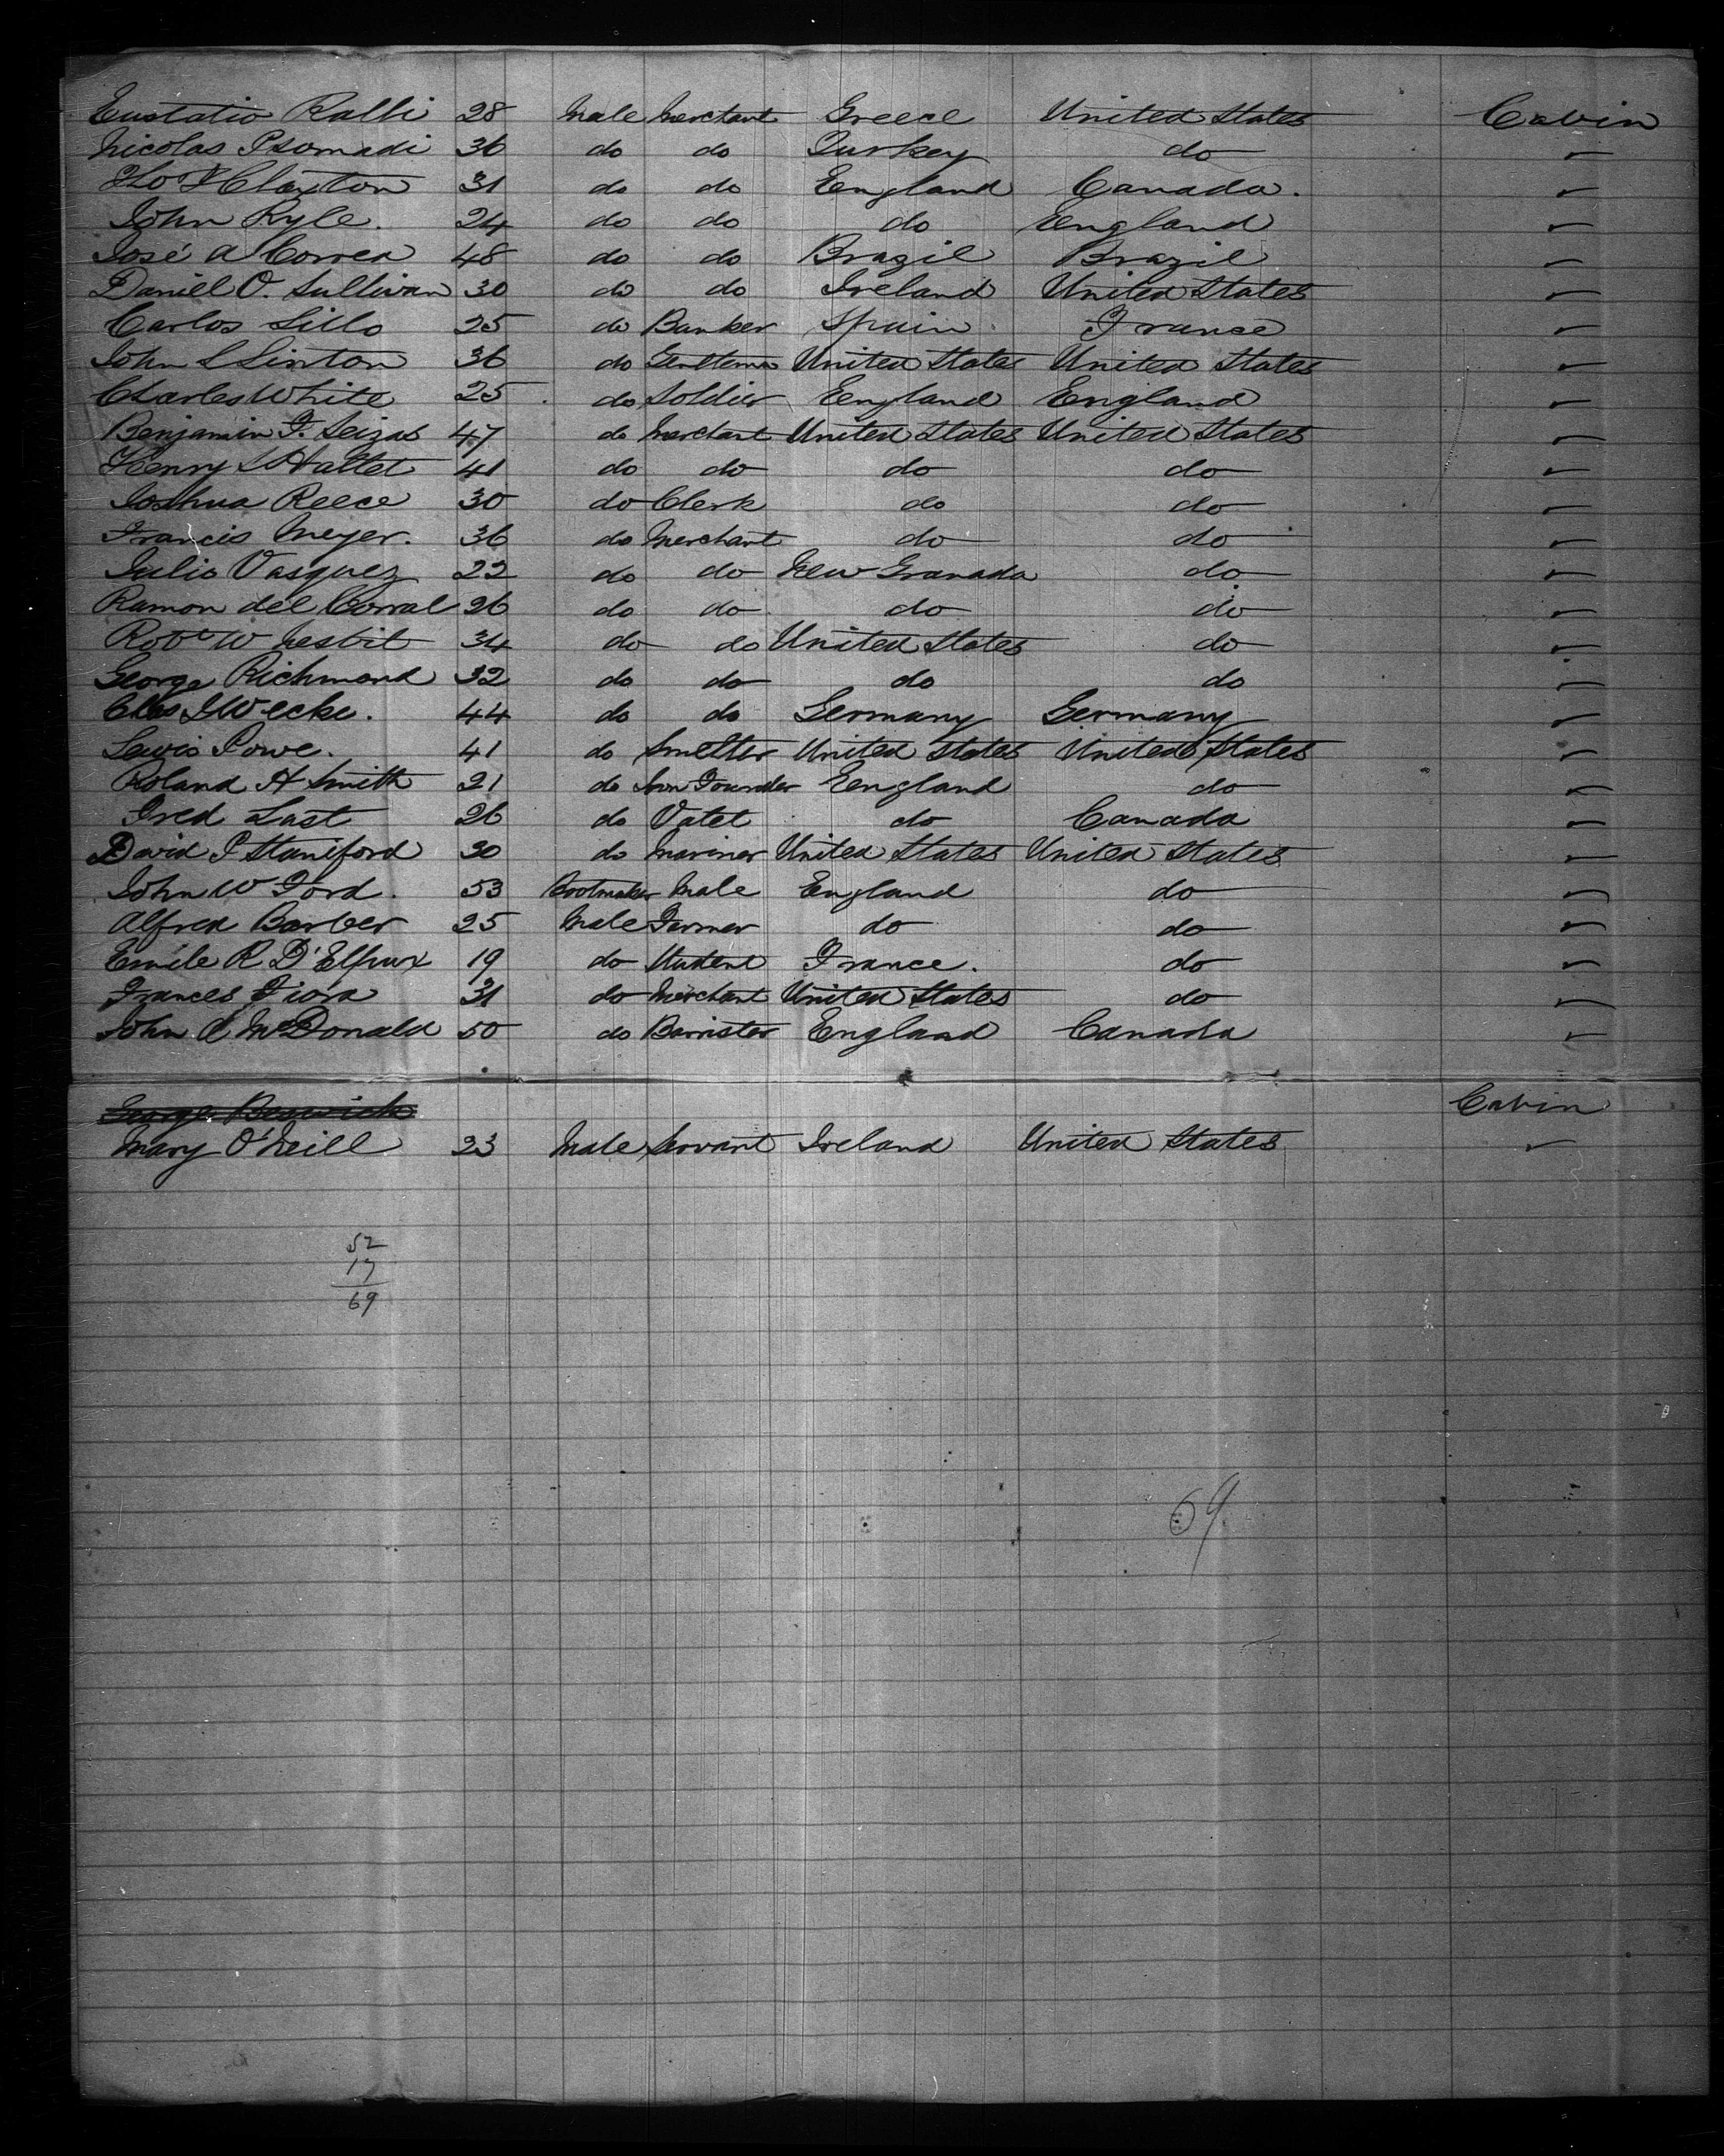 Eustatio Ralli 28 Male Merchant Greece United States Cabin
Nicolas Psomadi 36 do do Turkey do
Tho F Clayton 31 do do England Canada.
John Ryle. 24 do do do England
José A Correa 48 do do Brazil Brazil
Daniel O. Sullivan 30 do do Ireland United States
Carlos Lillo 25 do Banker Spain France
John S Linton 36 do Gentleman United States United States
Charles White 25 do Soldier England England
Benjamin F. Seixas 47 do Merchant United States United States
Henry Hallet 41 do do do do
Joshua Reece 30 do Clerk do do
Francis Meyer. 36 do Merchant do do
Julio Vasquez 22 do do New Granada do
Ramon del Corral 26 do do do do
Robt W Nesbit 34 do do United States do
George Richmond 32 do do do do
44 do do Germany Germany
Lewis Powe. 41 do Smelter United States United States
Roland H Smith 21 do Iron Founder England do
Fred Last 26 do Valet do Canada
David P Staniford 30 do Mariner United States United States
John W Ford. 53 Bootmaker Male England do
Alfred Barber 25 Male Farmer do do
Emile R 19 do Student France. do
Frances Fiora 31 do Merchant United States do
John A McDonald 50 do Barrister England Canada
George Beswick Cabin
Mary O'Neill 23 Male Servant Ireland United States
52
17
69
69